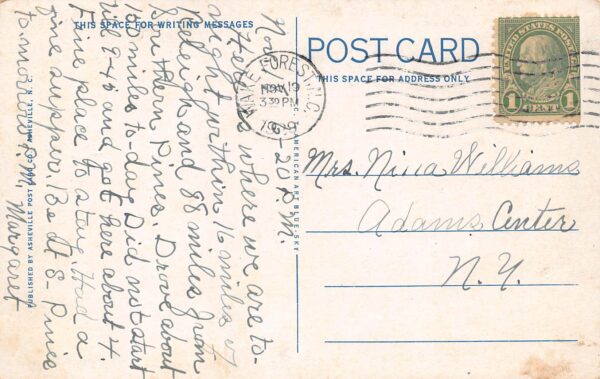 THIS SPACE FOR WRITING MESSAGES
POST CARD
THIS SPACE FOR ADDRESS ONLY
Nov. 6-20 P.M.
Here is where we are to-
night within 16 miles of
Raleigh and 88 miles from
Southern Pines. Drove about
miles to-day. Did not start
till 9-45 and got here about 4.
Fine place to stay. Had a
fine supper. Be at S-Pines
to-morrow A.M. Margaret
PUBLISHED BY ASHEVILLE POST CARD CO., ASHEVILLE, N. C.
AMERICAN ART BLUE-SKY
WAKE FOREST, N.C.
NOV 19
3 30 PM
UNITED STATES POSTAGE
1 CENT 1
Mrs. Nina Williams
Adams Center
N.Y.